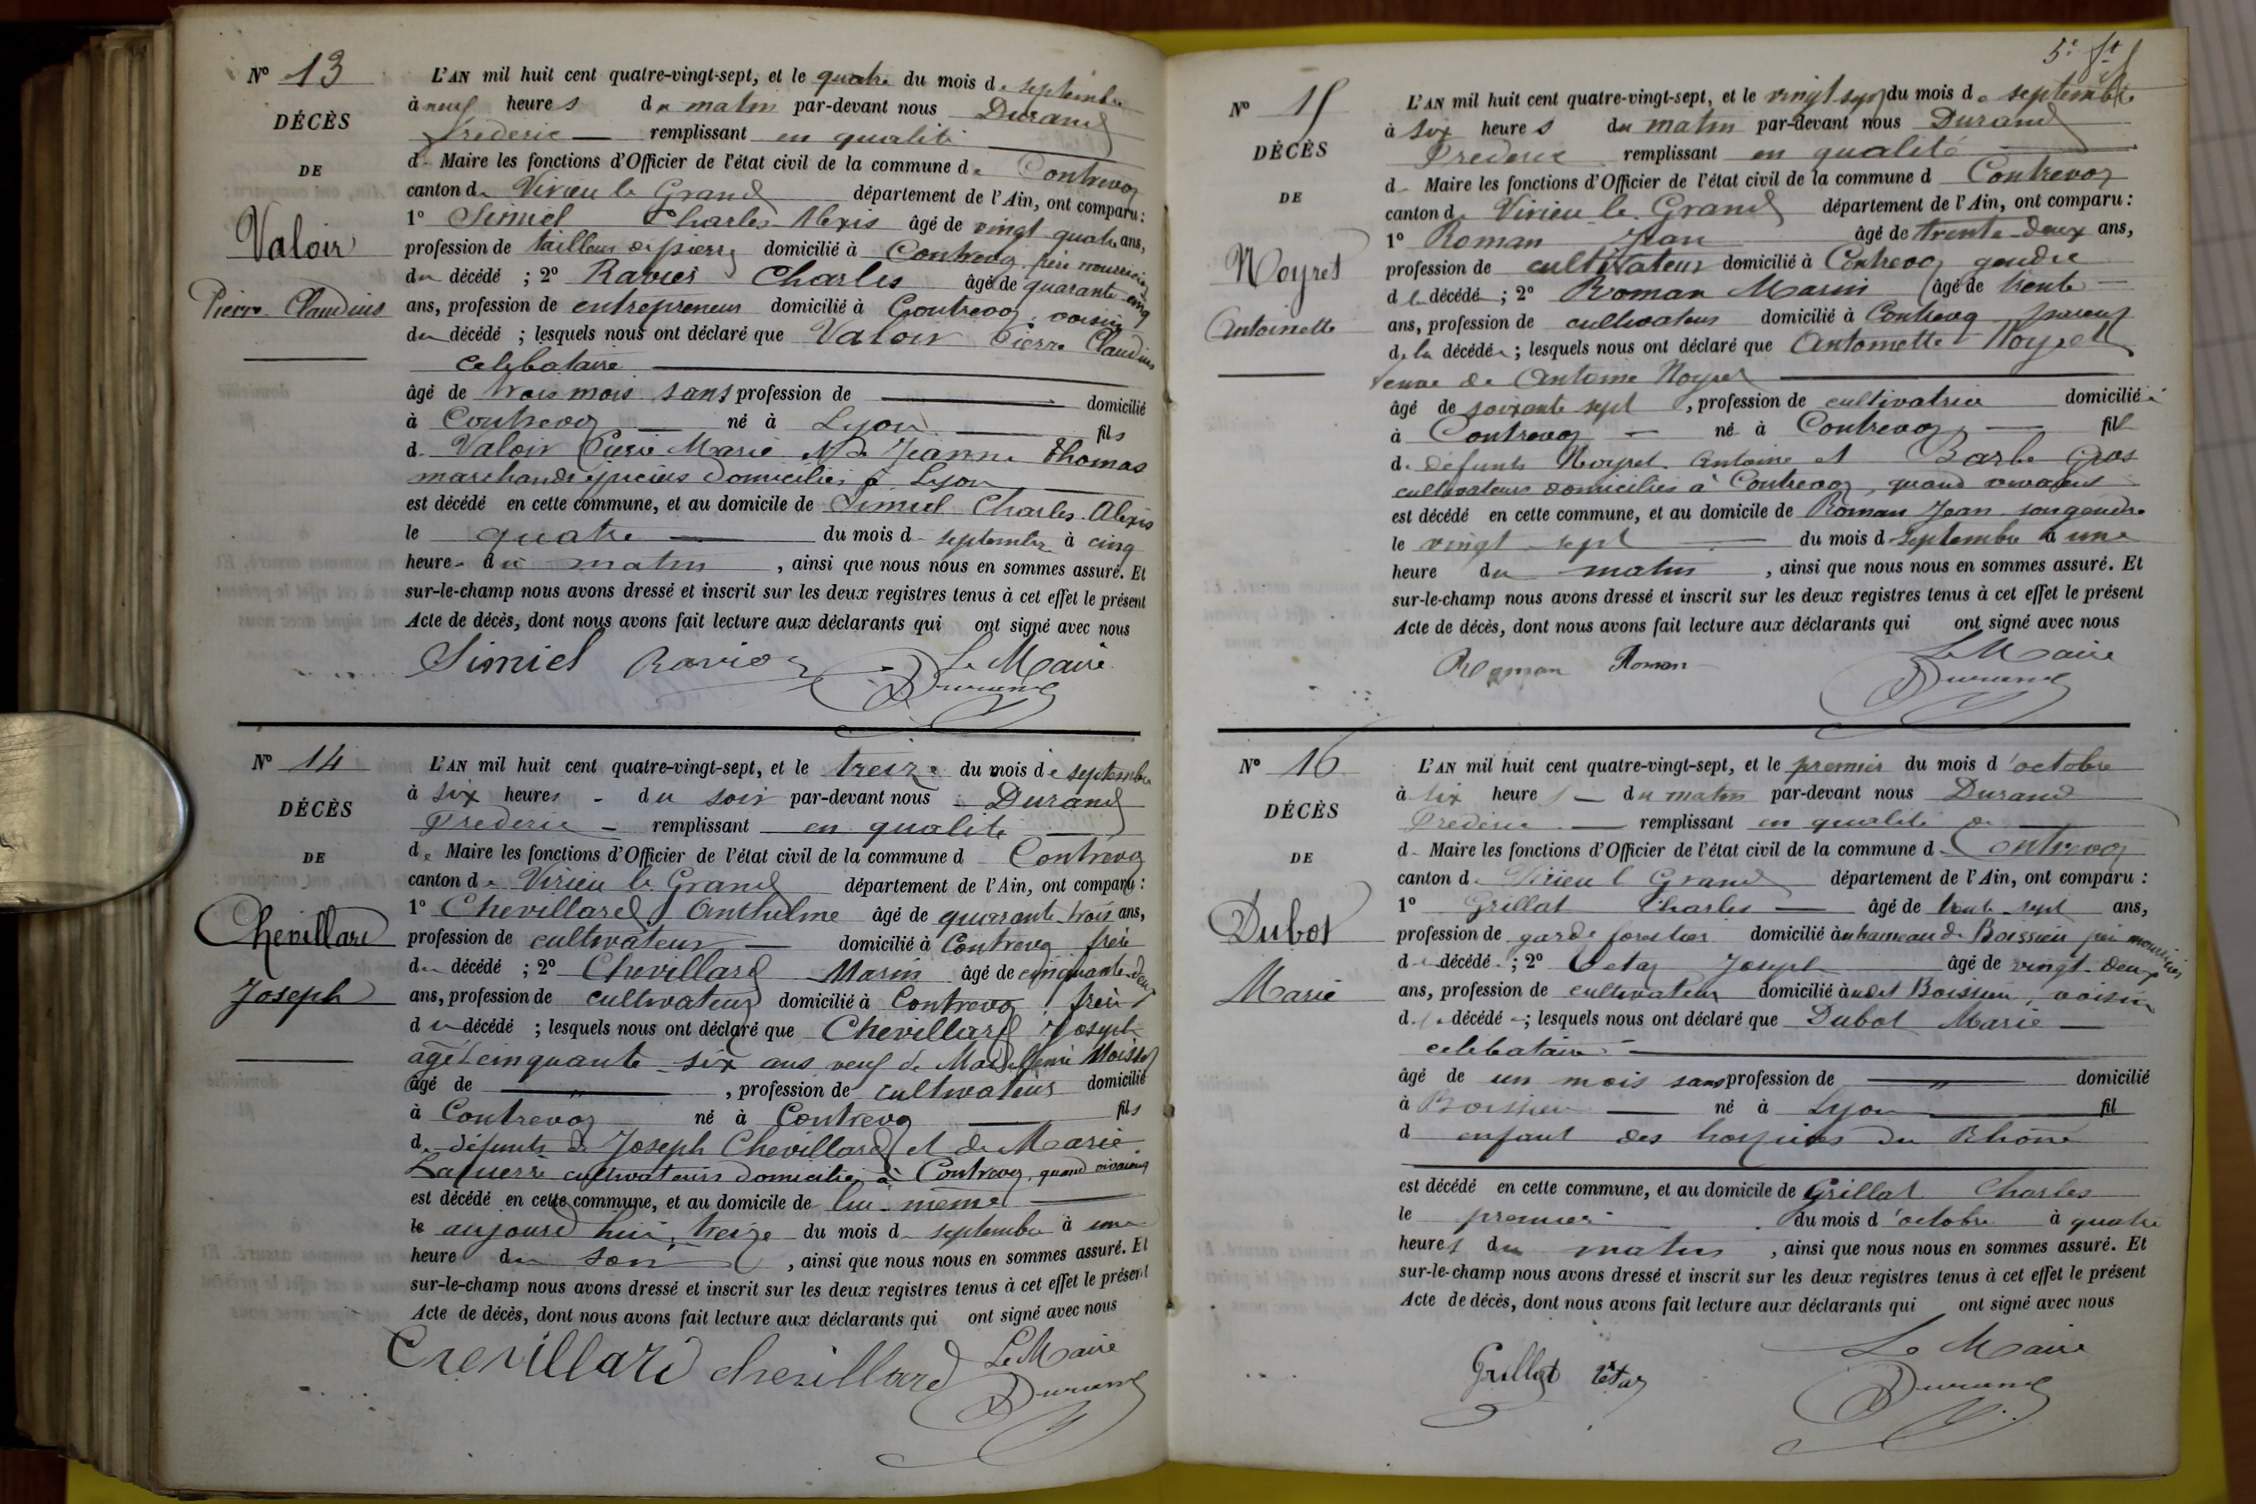 N° 13
DÉCÈS
DE
Valoir
Pierre Claudius
L'AN mil huit cent quatre-vingt-sept, et le quatre du mois de septembre
à neuf heures du matin par-devant nous Durand
Frederic remplissant en qualité
de Maire les fonctions d'Officier de l'état civil de la commune de Contrevoz
canton de Virieu le Grand département de l'Ain, ont comparu :
1° Simiel Charles Alexis âgé de vingt quatre ans,
profession de tailleur de pierre domicilié à Contrevoz père nourricier
du décédé ; 2° Ravier Charles âgé de quarante cinq
ans, profession de entrepreneur domicilié à Contrevoz, voisin
du décédé ; lesquels nous ont déclaré que Valoir Pierre Claudius
celebataire
âgé de trois mois sans profession de domicilié
à Contrevoz né à Lyon fils
de Valoir Marie Jeanne Thomas
marchands domiciliés à Lyon
est décédé en cette commune, et au domicile de Simiel Charles Alexis
le quatre du mois de septembre à cinq
heure du matin, ainsi que nous nous en sommes assuré. Et
sur-le-champ nous avons dressé et inscrit sur les deux registres tenus à cet effet le présent
Acte de décès, dont nous avons fait lecture aux déclarants qui ont signé avec nous
Simiel Ravier Le Maire
Durand
N° 14
DÉCÈS
DE
Chevillard
Joseph
L'AN mil huit cent quatre-vingt-sept, et le treize du mois de septembre
à six heures du soir par-devant nous Durand
Frederic remplissant en qualité
de Maire les fonctions d'Officier de l'état civil de la commune d Contrevoz
canton de Virieu le Grand département de l'Ain, ont comparu :
1° Chevillard Anthelme âgé de quarante trois ans,
profession de cultivateur domicilié à Contrevoz frère
du décédé ; 2° Chevillard Marin âgé de cinquante deux
ans, profession de cultivateur domicilié à Contrevoz frère
du décédé ; lesquels nous ont déclaré que Chevillard Joseph
âgé cinquante six ans veuf de
âgé de " , profession de cultivateur domicilié
à Contrevoz né à Contrevoz fils
de défunts de Joseph Chevillard et de Marie
cultivateurs domiciliés à Contrevoz, quand vivaient
est décédé en cette commune, et au domicile de lui-même
le aujourd'hui treize du mois de septembre à une
heure du soir, ainsi que nous nous en sommes assuré. Et
sur-le-champ nous avons dressé et inscrit sur les deux registres tenus à cet effet le présent
Acte de décès, dont nous avons fait lecture aux déclarants qui ont signé avec nous
Chevillard chevillard Le Maire
Durand
5e ft
N° 15
DÉCÈS
DE
Noyret
Antoinette
L'AN mil huit cent quatre-vingt-sept, et le vingt sept du mois de septembre
à six heures du matin par-devant nous Durand
Frederic remplissant en qualité
de Maire les fonctions d'Officier de l'état civil de la commune d Contrevoz
canton de Virieu le Grand département de l'Ain, ont comparu :
1° Roman Jean âgé de trente-deux ans,
profession de cultivateur domicilié à Contrevoz gendre
de la décédé ; 2° Roman Marin âgé de trente
ans, profession de cultivateur domicilié à Contrevoz parent
de la décédée ; lesquels nous ont déclaré que Antoinette Noyret
veuve de Antoine Noyret
âgé de soixante sept , profession de cultivatrice domiciliée
à Contrevoz né à Contrevoz fil
de défunts Noyret Antoine et Barbe Gros
cultivateurs domiciliés à Contrevoz, quand vivaient
est décédé en cette commune, et au domicile de Roman Jean son gendre
le vingt sept du mois de septembre à une
heure du matin, ainsi que nous nous en sommes assuré. Et
sur-le-champ nous avons dressé et inscrit sur les deux registres tenus à cet effet le présent
Acte de décès, dont nous avons fait lecture aux déclarants qui ont signé avec nous
Roman Roman Le Maire
Durand
N° 16
DÉCÈS
DE
Dubot
Marie
L'AN mil huit cent quatre-vingt-sept, et le premier du mois d'octobre
à six heures du matin par-devant nous Durand
Frederic remplissant en qualité de
d Maire les fonctions d'Officier de l'état civil de la commune de Contrevoz
canton de Virieu l Grand département de l'Ain, ont comparu :
1° Grillat Charles âgé de trente-sept ans,
profession de garde forestier domicilié à au hameau de Boissieu père nourricier
de décédé ; 2° Vetaz Joseph âgé de vingt-deux
ans, profession de cultivateur domicilié à audit Boissieu, voisin
de la décédé ; lesquels nous ont déclaré que Dubot Marie
celebataire
âgé de un mois sans profession de " domicilié
à Boissieu né à Lyon fil
d enfant des hospices du Rhône
est décédé en cette commune, et au domicile de Grillat Charles
le premier du mois d'octobre à quatre
heures du matin, ainsi que nous nous en sommes assuré. Et
sur-le-champ nous avons dressé et inscrit sur les deux registres tenus à cet effet le présent
Acte de décès, dont nous avons fait lecture aux déclarants qui ont signé avec nous
Grillat Vetaz Le Maire
Durand